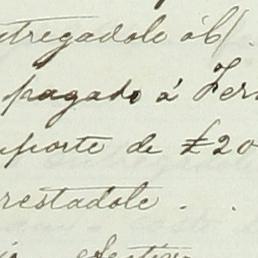 ntregadole ób/.
pagado á Fer
mporte de £20
restadole . .
efectiv